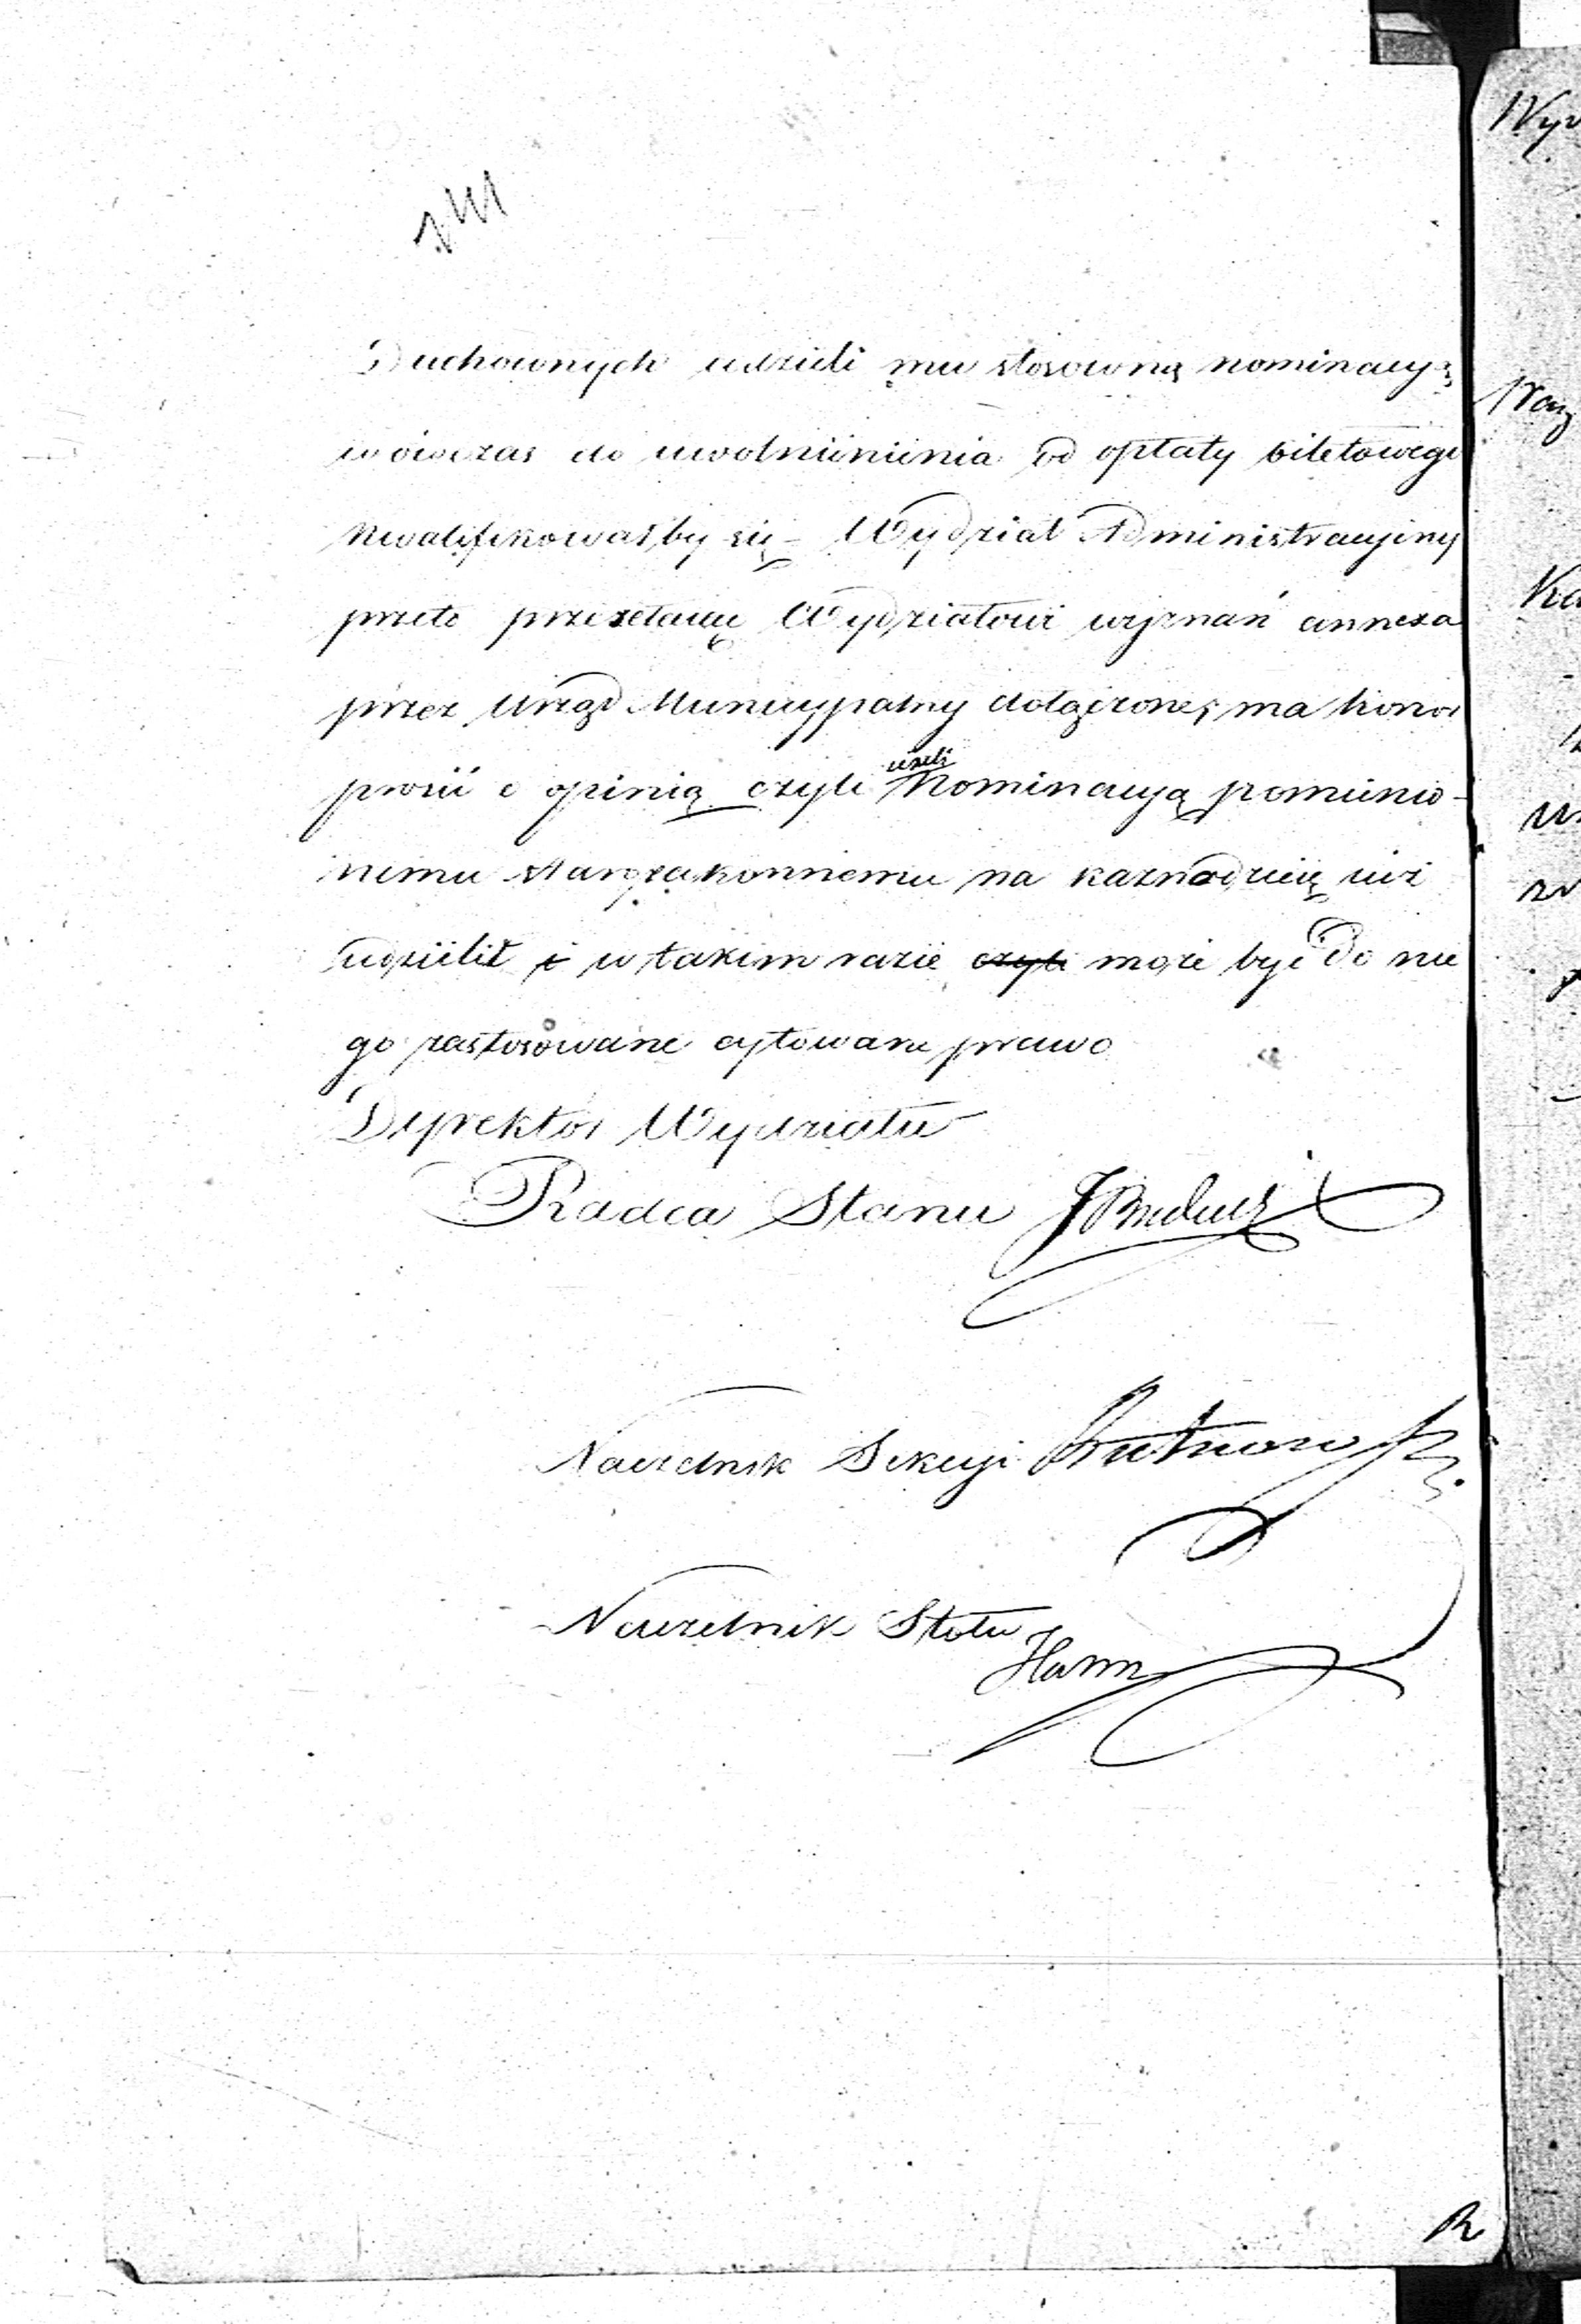 Duchownych udzieli mu stosowną nominacyą
wówczas do uwolnienienia od opłaty biletowego
kwalifikowałby się – Wydział Administracyjny
przeto przesełając Wydziałowi wyznań annexa
przez Urząd Municypalny dołączone, ma honor
prosić o opinią czyli jeżeli Nominacyą pomienio-
nemu Starozakonnemu na kaznodzieię iuż
udzielił i w takim razie czyli może być do nie
go zastosowane cytowane prawo
Dyrektor Wydziału
Radca Stanu
Naczelnik Sekcyi
Naczelnik Stołu
Hann
Wy
Ka